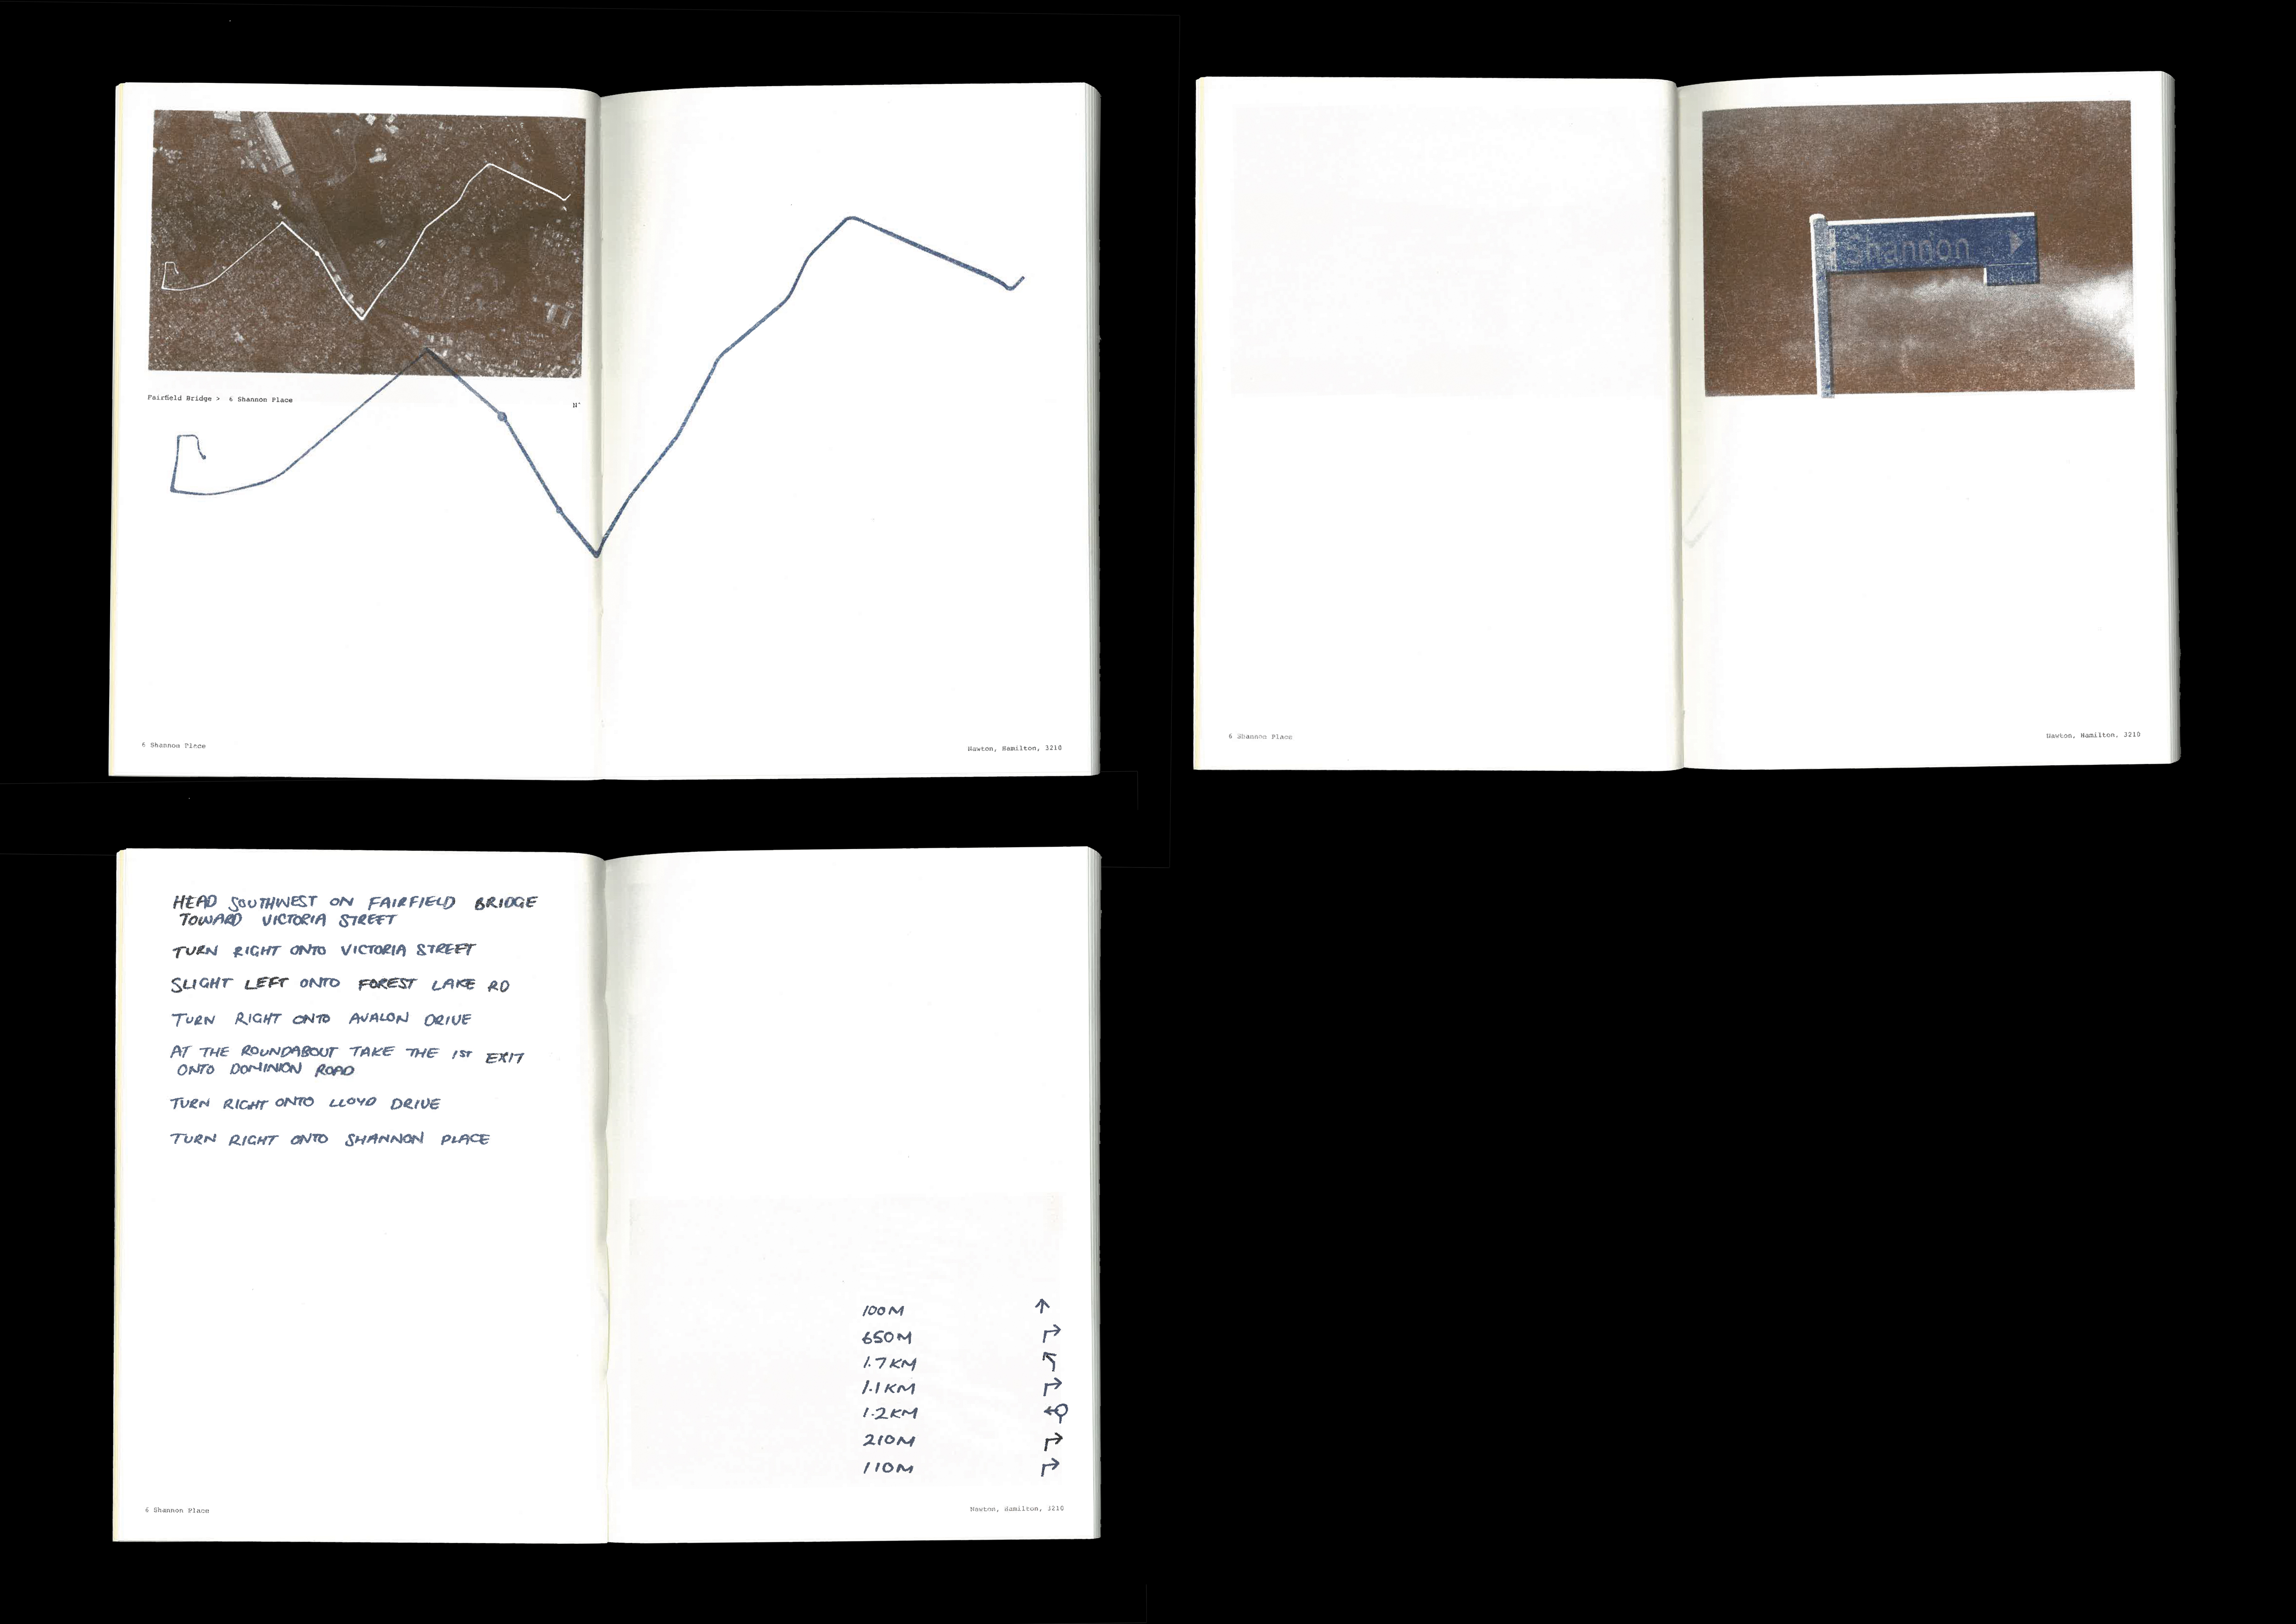 Fairfield Bridge > 6 Shannon Place
N'
6 Shannon Place
Nawton, Hamilton, 3210
Shannon
6 Shannon Place
Nawton, Hamilton, 3210
HEAD SOUTHWEST ON FAIRFIELD BRIDGE
TOWARD VICTORIA STREET
TURN RIGHT ONTO VICTORIA STREET
SLIGHT LEFT ONTO FOREST LAKE RD
TURN RIGHT ONTO AVALON DRIVE
AT THE ROUNDABOUT TAKE THE 1ST EXIT
ONTO DOMINION ROAD
TURN RIGHT ONTO LLOYD DRIVE
TURN RIGHT ONTO SHANNON PLACE
100M ↑
650M
1.7KM
1.1KM
1.2KM
210M
110M
6 Shannon Place
Nawton, Hamilton, 3210